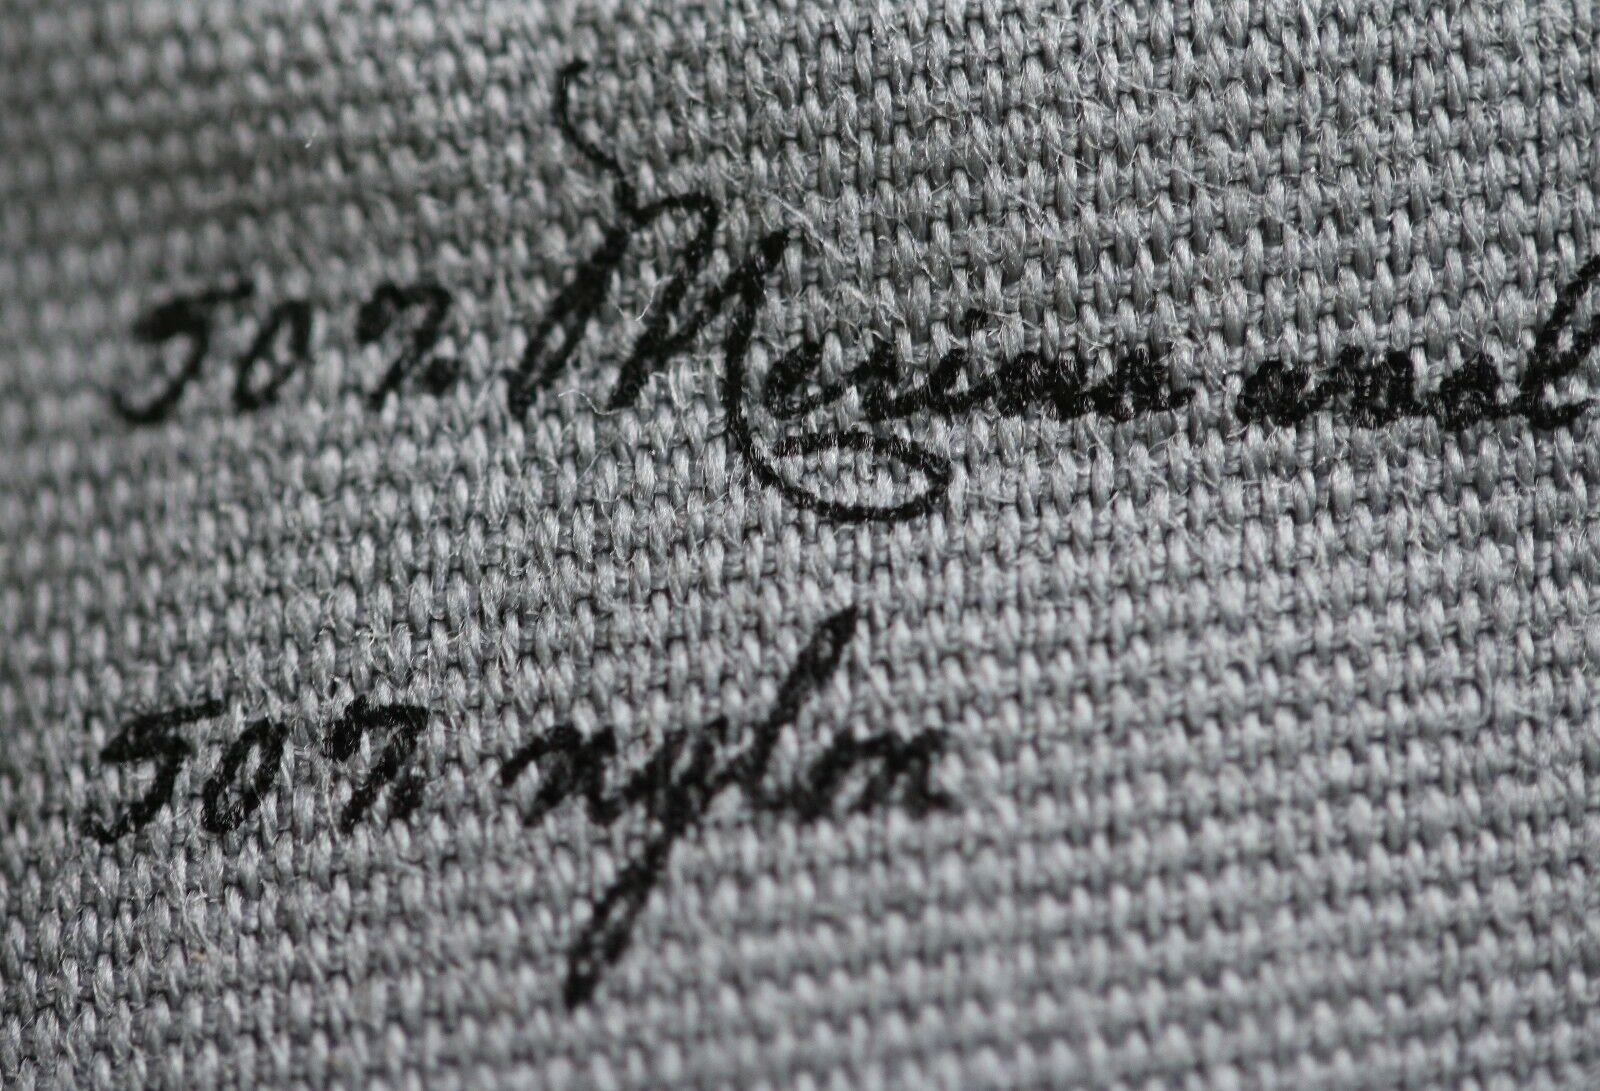 50% Merino wool
50% nylon